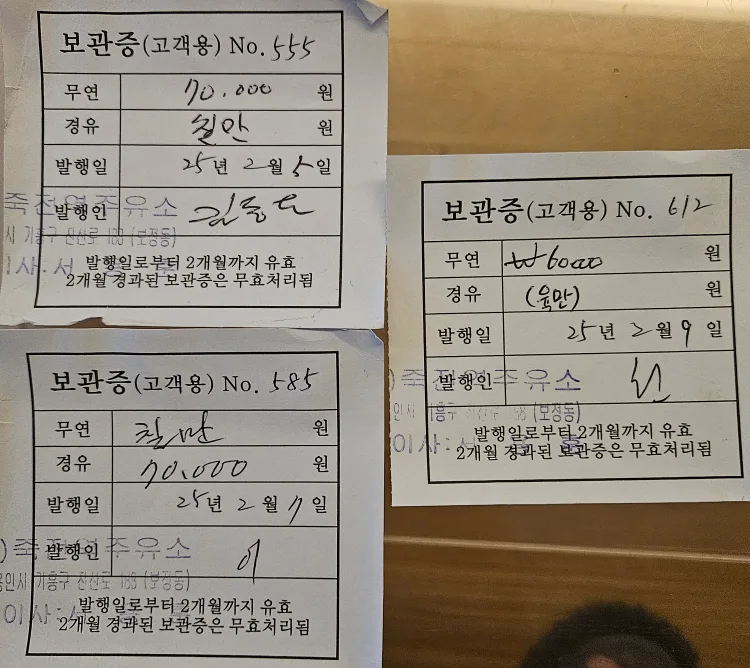 보관증(고객용) No. 555
무연 70.000 원
경유 칠만 원
발행일 25년 2월 5일
발행인
죽전역주유소
기흥구 신산로 183 (보정동)
발행일로부터 2개월까지 유효
2개월 경과된 보관증은 무효처리됨
보관증(고객용) No. 612
무연 ₩60000 원
경유 (육만) 원
발행일 25년 2월 9일
발행인
죽전역주유소
(보정동)
발행일로부터 2개월까지 유효
2개월 경과된 보관증은 무효처리됨
보관증(고객용) No. 585
무연 칠만 원
경유 70.000 원
발행일 25년 2월 7일
발행인 이
죽전역주유소
용인시 기흥구 신산로 183 (보정동)
발행일로부터 2개월까지 유효
2개월 경과된 보관증은 무효처리됨